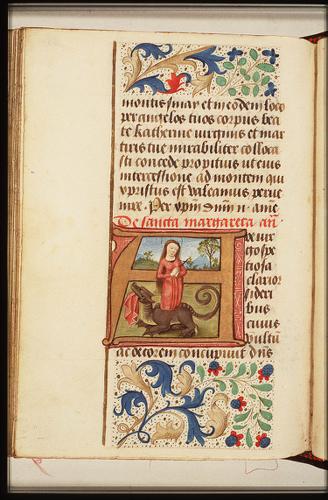 montis sinay et in eodem loco
per angelos tuos corpus bea
te katherine virginis et mar
tiris tue mirabiliter colloca
sti concede propitius ut eius
intercessione ad montem qui
xpristus est valeamus perue
nire. Per xpm dnm n. ame
De sancta margareta an
e vir
go spe
tiosa
clarior
sideri
bus
cuius
vultū
ac decorem concupiuit dns